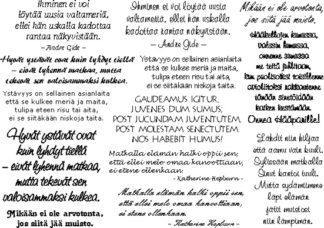 Ihminen ei voi
löytää uusia valtameriä,
ellei hän uskalla kadottaa
rantaa näkyvistään.
- Andre Gide -
Hyvät ystävät ovat kuin lyhdyt tiellä
- eivät lyhennä matkaa, mutta
tekevät sen valoisammaksi kulkea.
Ystävyys on sellainen asianlaita
että se kulkee meriä ja maita,
tulipa eteen risu tai aita,
ei se siitäkään niskoja taita.
Hyvät ystävät ovat
kuin lyhdyt tiellä
- eivät lyhennä matkaa,
mutta tekevät sen
valoisammaksi kulkea.
Mikään ei ole arvotonta,
jos siitä jää muisto.
Ihminen ei voi löytää uusia
valtameriä, ellei hän uskalla
kadottaa rantaa näkyvistään.
- Andre Gide -
Ystävyys on sellainen asianlaita
että se kulkee meriä ja maita,
tulipa eteen risu tai aita,
ei se siitäkään niskoja taita.
GAUDEAMUS IGITUR,
JUVENES DUM SUMUS;
POST JUCUNDAM JUVENTUTEM,
POST MOLESTAM SENECTUTEM
NOS HABEBIT HUMUS!
Matkalla elämän halki oppii sen,
että ellei mele omaa kanoottiaan,
ei etene ollenkaan.
- Katherine Hepburn -
Matkalla elämän halki oppii sen
että ellei melo omaa kanoottiaan,
ei etene ollenkaan.
- Katherine Hepburn -
Mikään ei ole arvotonta,
jos siitä jää muisto.
lapsi elämän
Onnea Hääparille!
Lähdit niin hiljaa
että aamu vain kuuli.
Syliinsään matkalla
Sinut kantoi tuuli.
Mutta sydämiimme
lapsi elämän
jätit muistot
niin lämpimän.